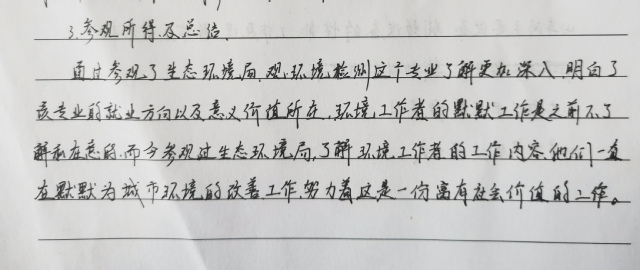 3.参观所得及总结.
通过参观了生态环境局,观环境检测这个专业了解更加深入,明白了
该专业的就业方向以及意义价值所在,环境工作者的默默工作是之前不了
解和在意的.而今参观过生态环境局,了解环境工作者的工作内容.他们一直
在默默为城市环境的改善工作.努力着这是一份富有社会价值的工作。